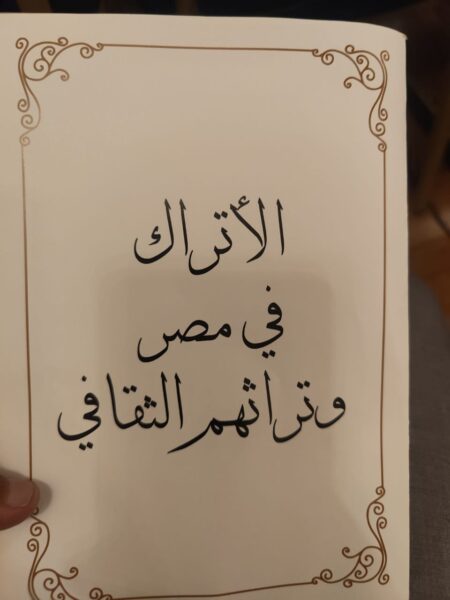 الأتراك
في مصر
وتراثهم الثقافي